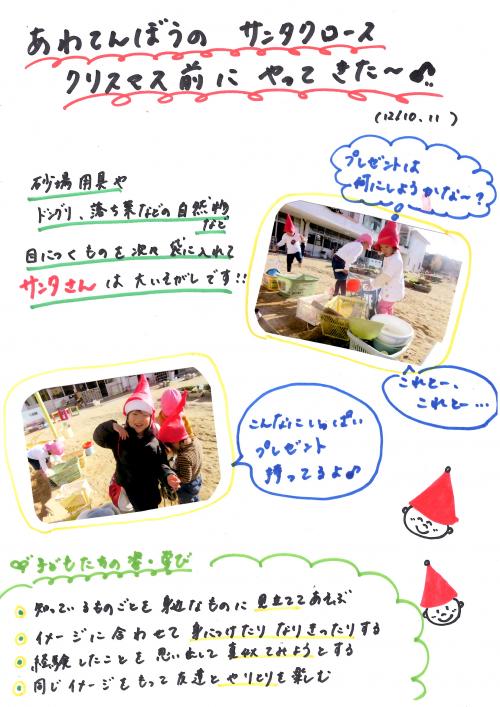 あわてんぼうの サンタクロース
クリスマス前に やってきた～♪!!
(12/10、11)
プレゼントは
何にしようかな～?
砂場用具や
ドングリ、落ち葉などの自然物
など
目につくものを次々袋に入れて
サンタさんは大いそがしです!!
これとー、
これとー…
こんなにいっぱい
プレゼント
持ってるよ♪
子どもたちの姿・学び
知っているものごとを身近なものに見立ててあそぶ
イメージに合わせて身につけたりなりきったりする
経験したことを思い出して真似てみようとする
同じイメージをもって友達とやりとりを楽しむ